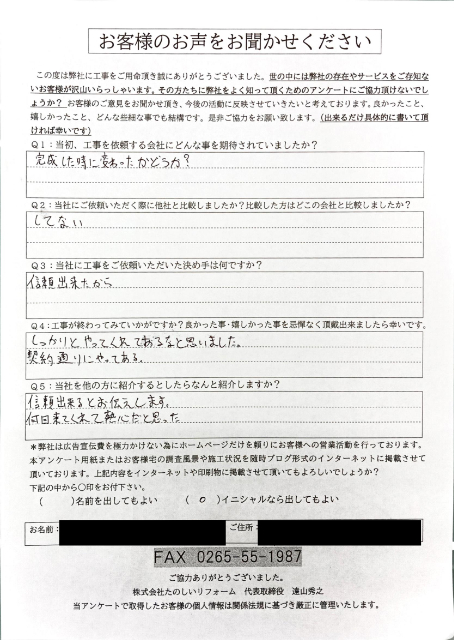 お客様のお声をお聞かせください
この度は弊社に工事をご用命頂き誠にありがとうございました。世の中には弊社の存在やサービスをご存知な
いお客様が沢山いらっしゃいます。その方たちに弊社をよく知って頂くためのアンケートにご協力頂けないでし
ょうか？ お客様のご意見をお聞かせ頂き、今後の活動に反映させていきたいと考えております。良かったこと、
嬉しかったこと、どんな些細な事でも結構です。是非ご協力をお願い致します。（出来るだけ具体的に書いて頂
ければ幸いです）
Q１：当初、工事を依頼する会社にどんな事を期待されていましたか？
完成した時に変わったかどうか？
Q２：当社にご依頼いただく際に他社と比較しましたか？比較した方はどこの会社と比較しましたか？
してない
Q３：当社に工事をご依頼いただいた決め手は何ですか？
信頼出来たから
Q４：工事が終わってみていかがですか？良かった事・嬉しかった事を忌憚なく頂戴出来ましたら幸いです。
しっかりとやってくれてあるなと思いました。
契約通りにやってある。
Q５：当社を他の方に紹介するとしたらなんと紹介しますか？
信頼出来るとお伝えします。
何日来てくれて熱心だと思った
＊弊社は広告宣伝費を極力かけない為にホームページだけを頼りにお客様への営業活動を行っております。
本アンケート用紙またはお客様宅の調査風景や施工状況を随時ブログ形式のインターネットに掲載させて
頂いております。上記内容をインターネットや印刷物に掲載させて頂いてもよろしいでしょうか？
下記の中から〇印をお付下さい。
（　　）名前を出してもよい　　（ ○ ）イニシャルなら出してもよい
お名前：　ご住所：
FAX 0265-55-1987
ご協力ありがとうございました。
株式会社たのしいリフォーム　代表取締役　遠山秀之
当アンケートで取得したお客様の個人情報は関係法規に基づき厳正に管理いたします。